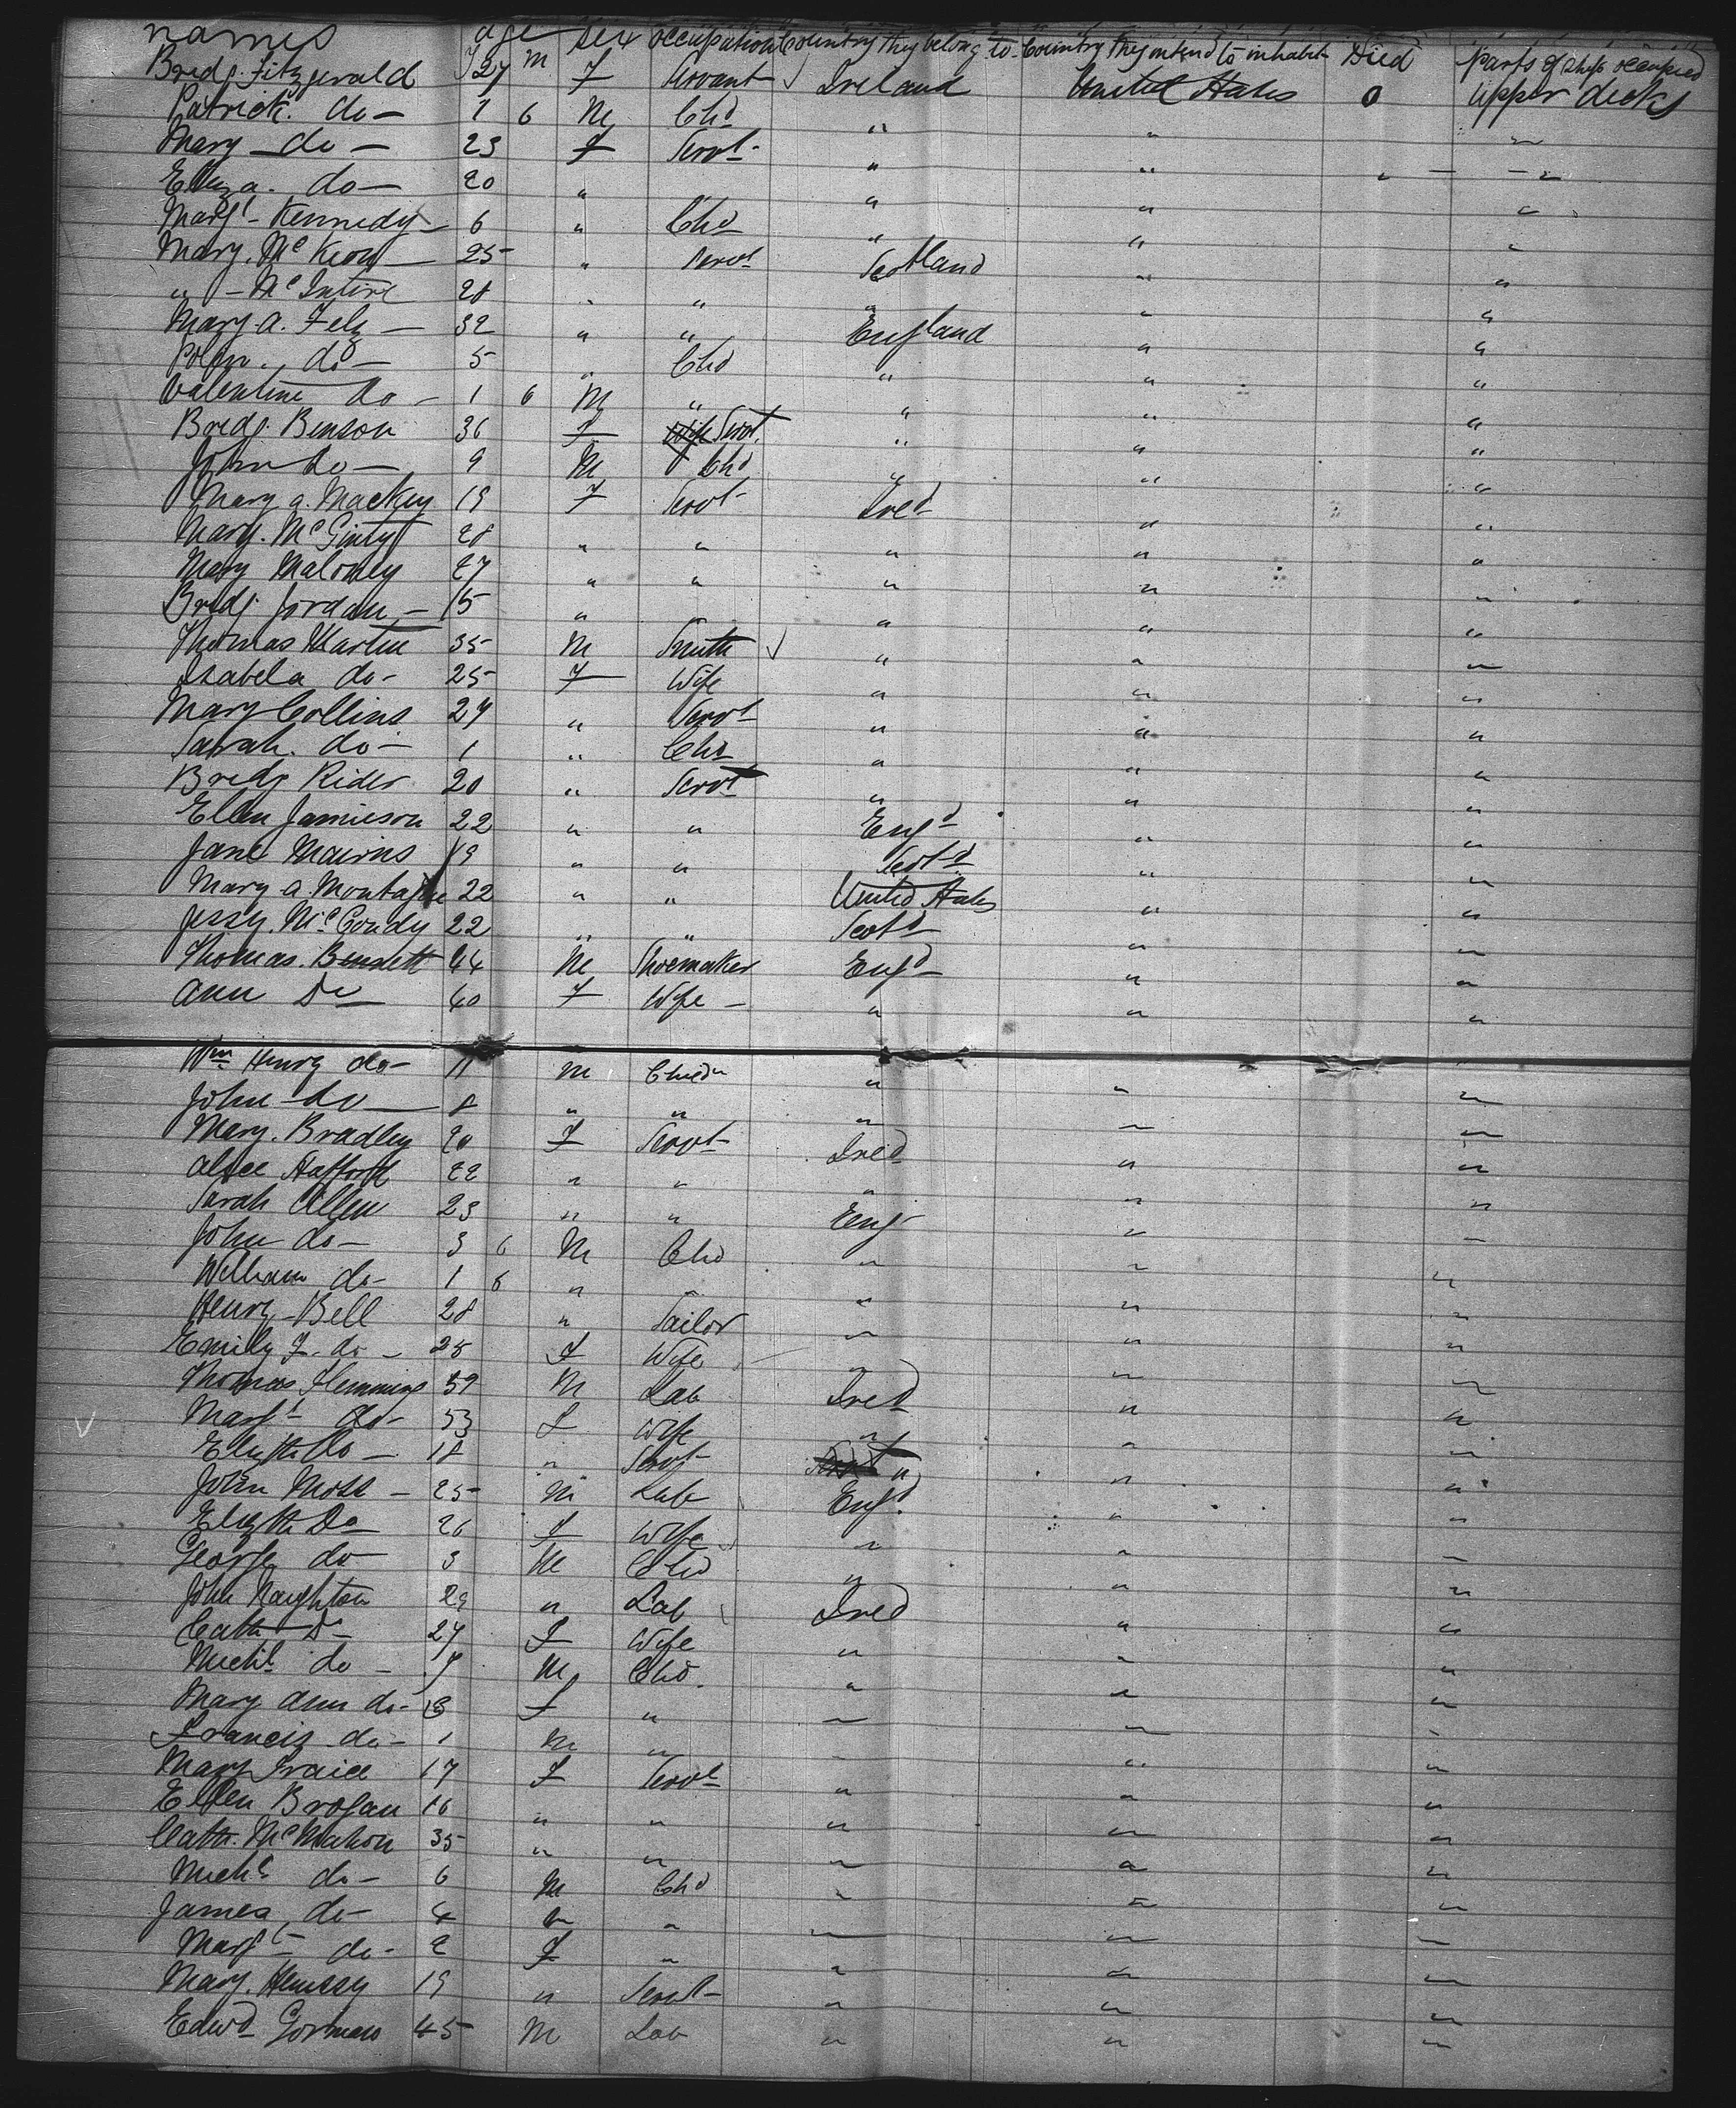 names age sex occupation Country they belong to Country they intend to inhabit Died parts of ship occupied
Bredg. Fitzgerald 27 F Servant Ireland United States 0 upper decks
Patrick. do 1 6 M Chd " " "
Mary do 23 F Servt " " "
Eliza. do 20 " " " "
Margt Kennedy 6 " Chd " " "
Mary. McKeon 25 " Servt Scotland " "
" McIntire 28 " " " " "
Mary A. Fely 32 " " England " "
do 5 " Chd " " "
Valentine do 1 6 M " " " "
Bredg. Benson 36 F Servt. " " "
John do 9 M Chd " " "
Mary A. Mackey 19 F Servt Ireд " "
Mary. McGinty 28 " " " " "
Mary Maloney 27 " " " " "
Bredg. Jordan 15 " " " " "
Thomas Martin 35 M Smith " " "
Isabela do 25 F Wife " " "
Mary Collins 27 " Servt " " "
Sarah. do 1 " Chd " " "
Bredg Rider 20 " Servt " " "
Ellen Jamieson 22 " " Engd " "
Jane Mairns 19 " " Scotd " "
Mary A. Montague 22 " " United States " "
Jessy. McCondy 22 " " Scotd " "
Thomas. Bennett 44 M Shoemaker Engd " "
Ann Do 40 F Wife " " "
Wm Henry do 11 M " " "
John do 8 " " " " "
Mary. Bradley 20 F Servt Ired " "
Alice Stafford 22 " " " " "
Sarah Allen 23 " " Eng " "
John do 3 6 M Chd " " "
William do 1 6 " " " " "
Henry Bell 28 " Tailor " " "
Emily F. do 28 F Wife " " "
Thomas Flemming 59 M Lab Ired " "
Margt do 53 F Wife " " "
Elizth do 18 " Servt " " "
John Moss 25 M Lab Engd. " "
Elizth Do 26 F Wife " " "
George do 3 M Chd " " "
John Naughton 29 " Lab Ired " "
Cath Do 27 F Wife " " "
Michl do 7 M Chd. " " "
Mary Ann do 3 F " " " "
Francis do 1 M " " " "
Mary 17 F Servt " " "
Ellen Brogan 16 " " " " "
Cath. McMahon 35 " " " " "
Michl do 6 M Chd " " "
James do 4 " " " " "
Margt do 2 F " " " "
Mary. Hennesy 19 " Servt " " "
Edwd Gorman 45 M Lab " " "